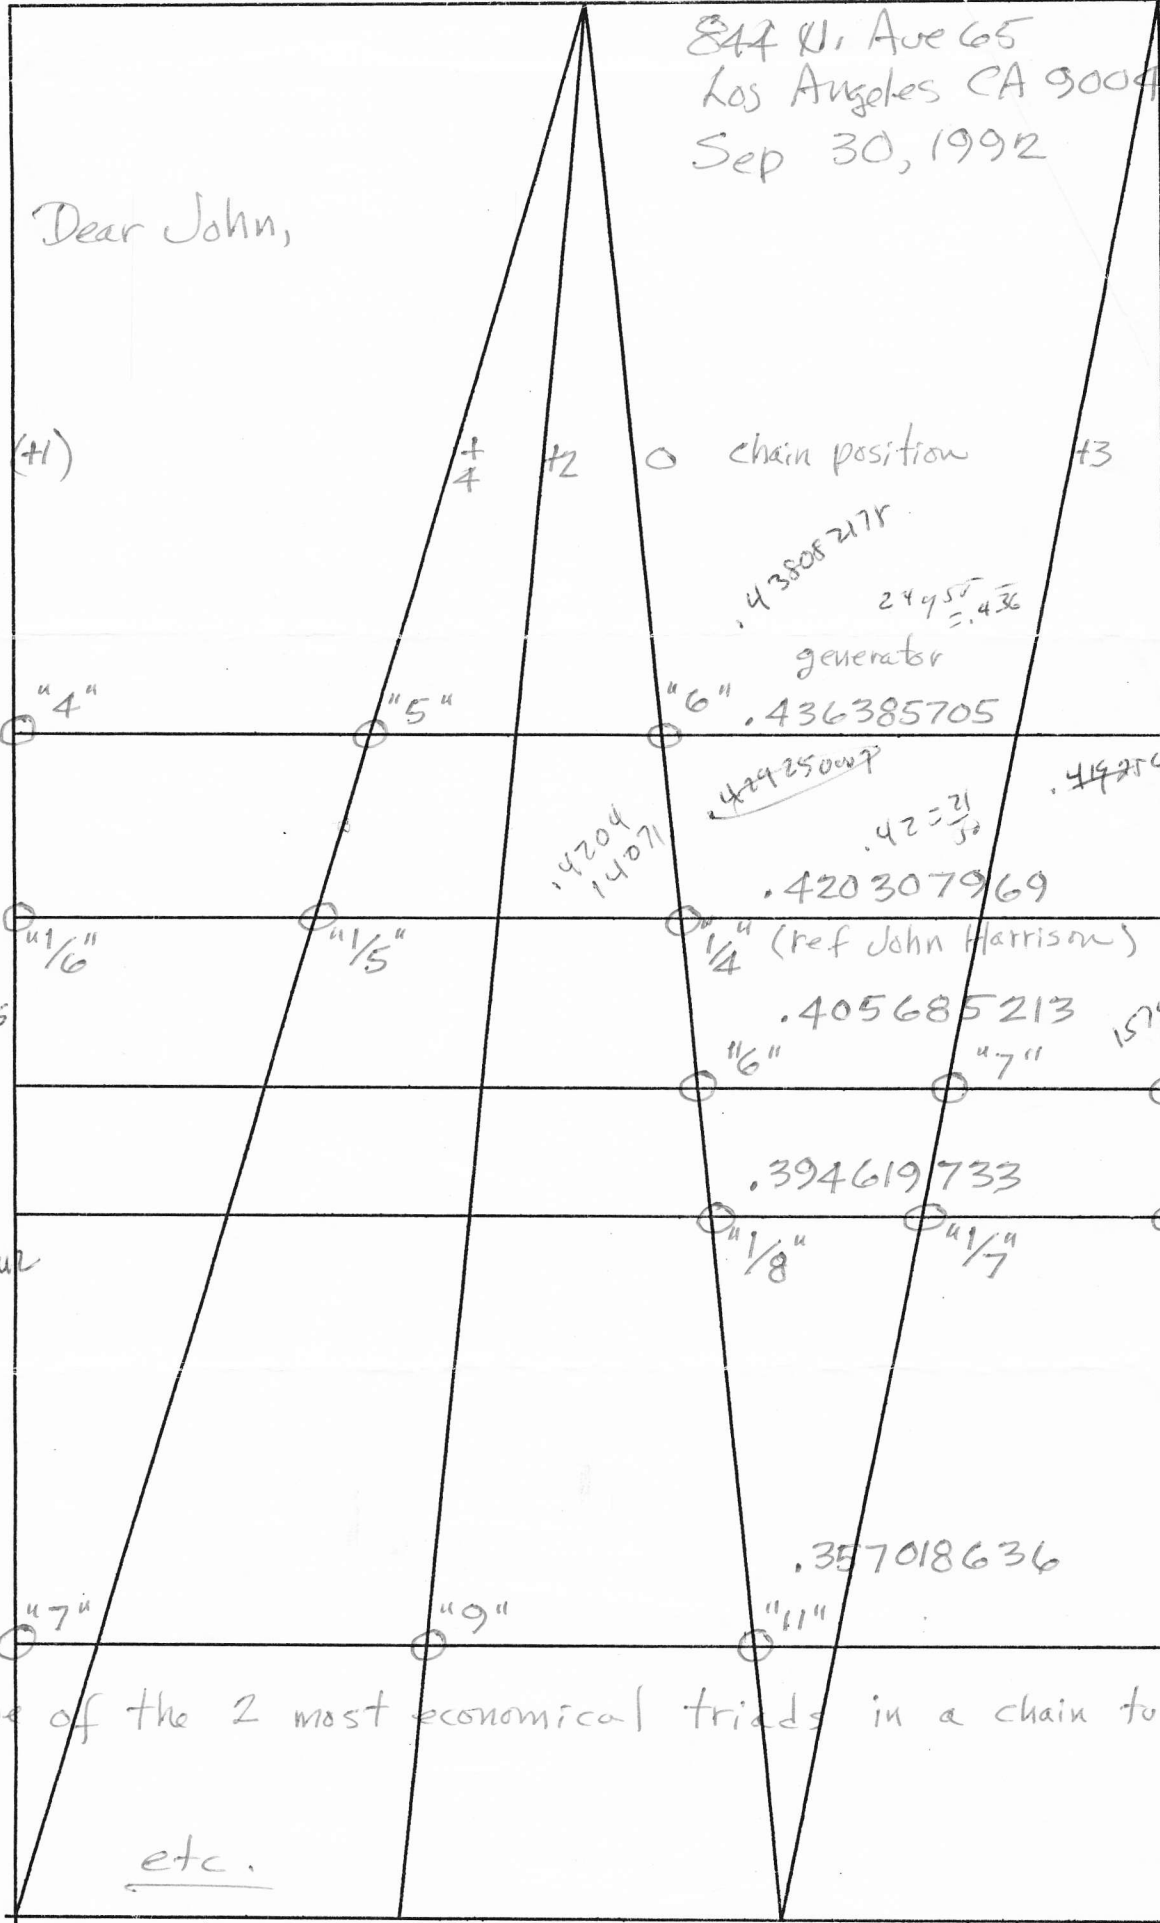 844 N. Ave 65
Los Angeles CA 9004
Sep 30, 1992
Dear John,
(+1) +4 +2 0 chain position +3
.438082178
24/55
=.436
generator
"4" "5" "6" .436385705
.42 = 21/50
.4204
14071
.420307969
"1/6" "1/5" "1/4" (ref John Harrison)
.405685213
"6" "7"
.394619733
"1/8" "1/7"
.357018636
"7" "9" "11"
of the 2 most economical triads in a chain
etc.